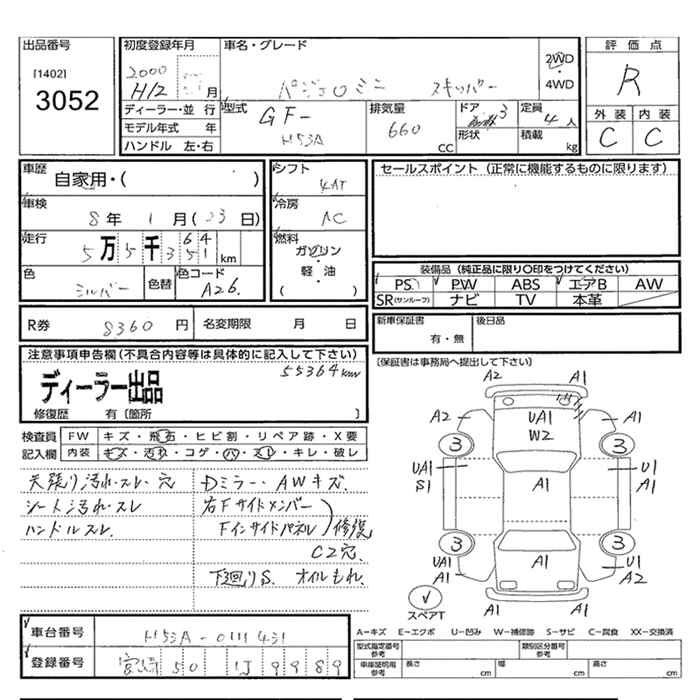 出品番号
[1402]
3052
初度登録年月
2000
H12 月
車名・グレード
パジェロミニ スキッパー
2WD
4WD
評価点
R
外装 内装
C C
ディーラー・並行
モデル年式 年
ハンドル 左・右
型式
GF-
H53A
排気量
660
CC
ドア 3
形状
定員
4 人
積載
kg
車歴
自家用・( )
車検
8年 1月(23日)
走行
5万5千 km
色
シルバー
色替
色コード
A26
シフト
4AT
冷房
AC
燃料
ガソリン
・
軽・油
( )
セールスポイント (正常に機能するものに限ります)
装備品 (純正品に限り○印をつけてください)
PS PW ABS エアB AW
SR(サンルーフ) ナビ TV 本革
新車保証書
有・無
後日品
R券 8360 円
名変期限 月 日
(保証書は事務局へ提出して下さい)
注意事項申告欄(不具合内容等は具体的に記入して下さい)
55364km
ディーラー出品
修復歴 有〔箇所 〕
検査員 FW キズ・飛石・ヒビ割・リペア跡・X要
記入欄 内装 キズ・汚れ・コゲ・穴・スレ・キレ・破レ
天張り汚れ・スレ・穴
シート汚れ・スレ
ハンドルスレ
Dミラー・AWキズ.
右Fサイドメンバー
Fインサイドパネル 修復
C2穴.
下廻りS. オイルもれ.
A2 A1
A2 UA1 A1
W2
3 3
UA1 U1
S1 A1 A1
3 3
UA1 A1 U1
A1 A2
A1
スペアT
A-キズ E-エクボ U-凹み W-補修跡 S-サビ C-腐食 XX-交換済
車台番号
H53A-
登録番号
宮崎 50 9989
型式指定番号
参考
類別区分番号
参考
車庫証明用
参考
長さ cm
幅 cm
高さ cm